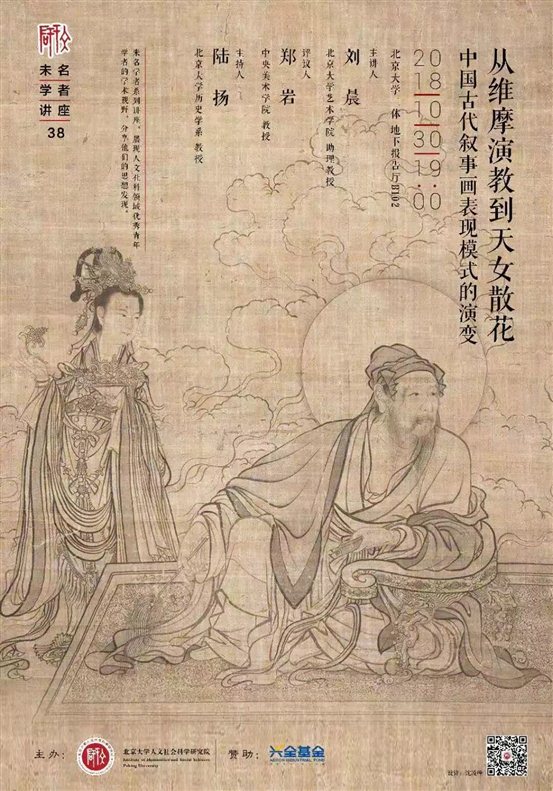 从维摩演教到天女散花
中国古代叙事画表现模式的演变
2018|10|30|19:00
北京大学 体 地下报告厅B102
主讲人
刘晨
北京大学艺术学院 助理教授
评议人
郑岩
中央美术学院 教授
主持人
陆扬
北京大学历史学系 教授
未名学者系列讲座，展现人文社科领域优秀青年
学者的学术视野，分享他们的思想发现。
未名
学者
讲座
38
主办：
北京大学人文社会科学研究院
Institute of Humanities and Social Sciences
Peking University
赞助：
兴全基金
AEGON-INDUSTRIAL FUND
设计：